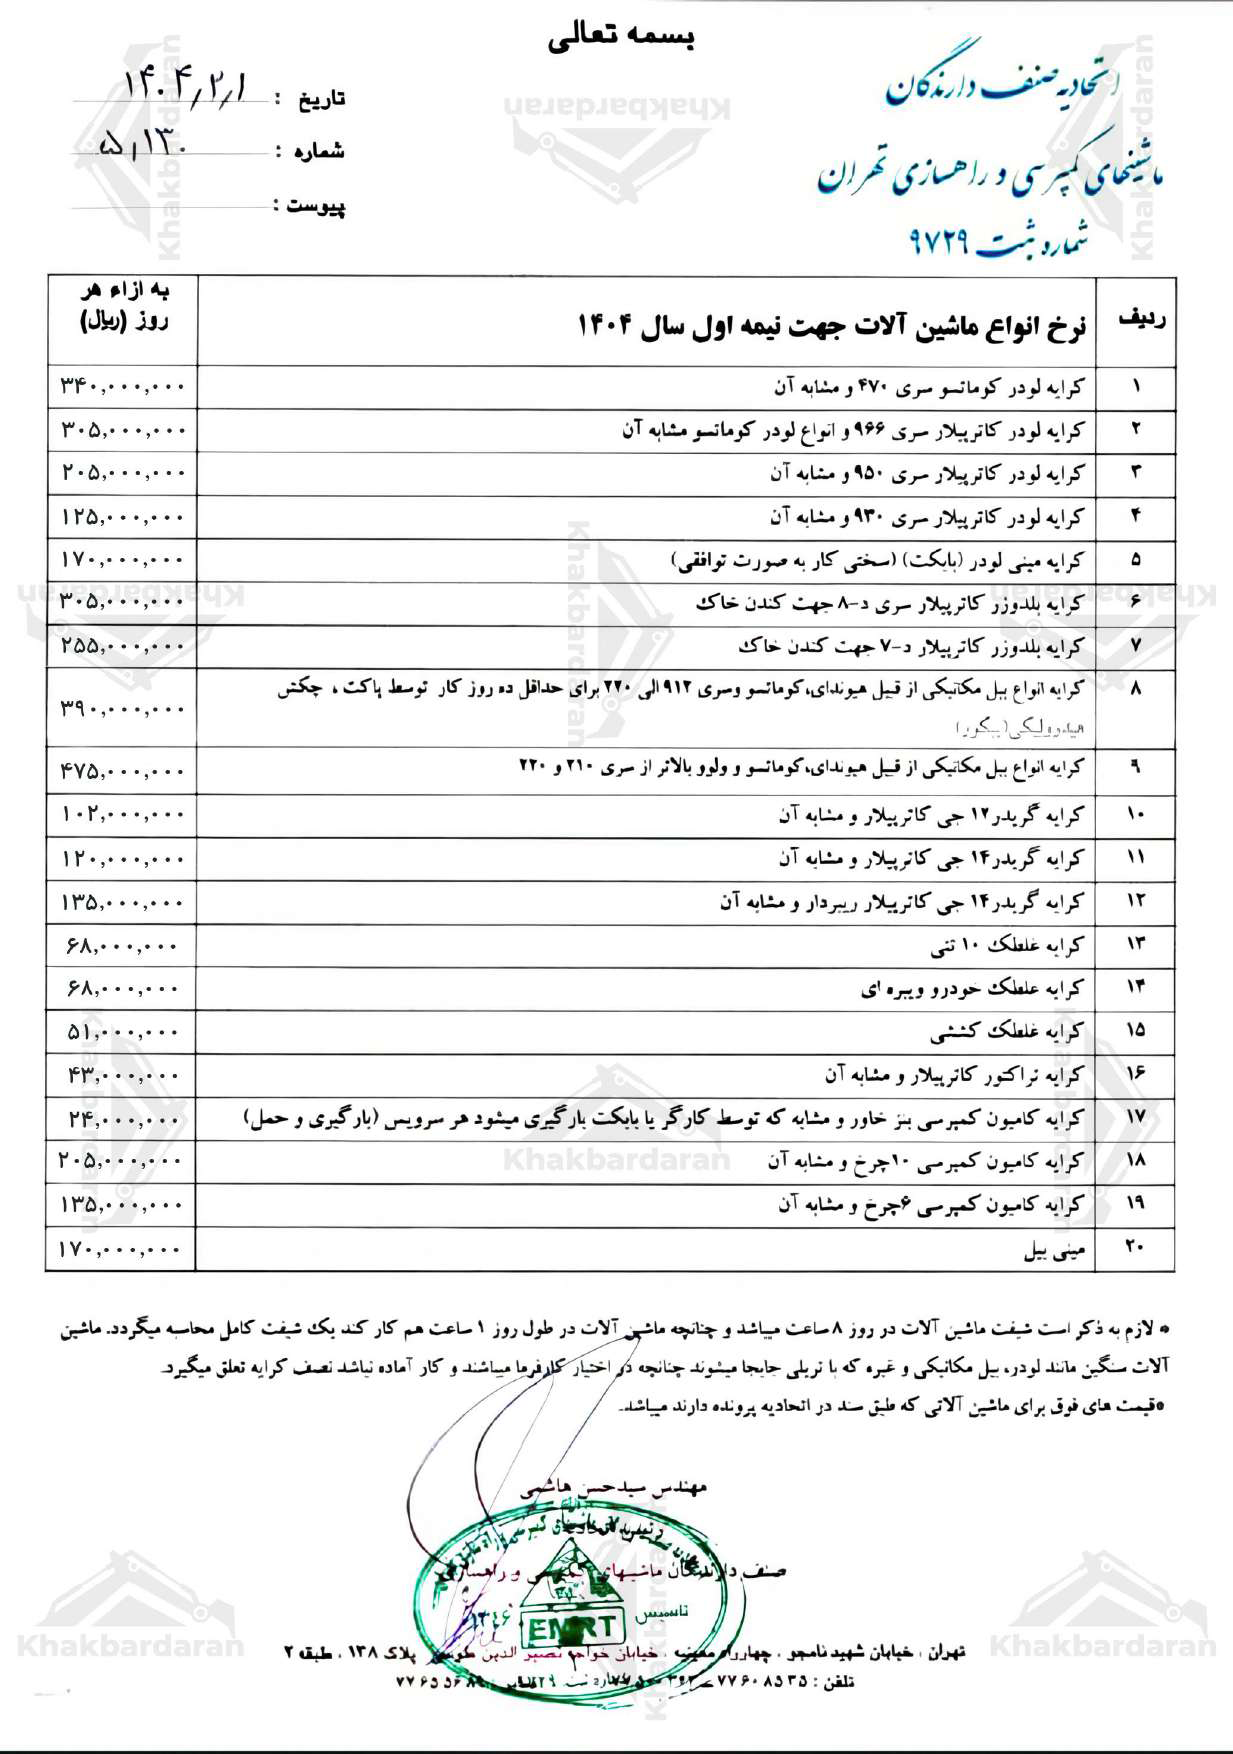 بسمه تعالی
اتحادیه صنف دارندگان
ماشینهای کمپرسی و راهسازی تهران
شماره ثبت ۹۷۲۹
تاریخ : ۱۴۰۴/۲/۱
شماره : ۵/۱۳۰
پیوست :
ردیف نرخ انواع ماشین آلات جهت نیمه اول سال ۱۴۰۴ به ازاء هر روز (ریال)
۱ کرایه لودر کوماتسو سری ۴۷۰ و مشابه آن ۳۴۰,۰۰۰,۰۰۰
۲ کرایه لودر کاترپیلار سری ۹۶۶ و انواع لودر کوماتسو مشابه آن ۳۰۵,۰۰۰,۰۰۰
۳ کرایه لودر کاترپیلار سری ۹۵۰ و مشابه آن ۲۰۵,۰۰۰,۰۰۰
۴ کرایه لودر کاترپیلار سری ۹۳۰ و مشابه آن ۱۲۵,۰۰۰,۰۰۰
۵ کرایه مینی لودر (بابکت) (سختی کار به صورت توافقی) ۱۷۰,۰۰۰,۰۰۰
۶ کرایه بلدوزر کاترپیلار سری د-۸ جهت کندن خاک ۳۰۵,۰۰۰,۰۰۰
۷ کرایه بلدوزر کاترپیلار د-۷ جهت کندن خاک ۲۵۵,۰۰۰,۰۰۰
۸ کرایه انواع بیل مکانیکی از قبیل هیوندای،کوماتسو وسری ۹۱۲ الی ۲۲۰ برای حداقل ده روز کار توسط پاکت ، چکش ۳۹۰,۰۰۰,۰۰۰
هیدرولیکی(پیکور)
۹ کرایه انواع بیل مکانیکی از قبیل هیوندای،کوماتسو و ولوو بالاتر از سری ۲۱۰ و ۲۲۰ ۴۷۵,۰۰۰,۰۰۰
۱۰ کرایه گریدر۱۲ جی کاترپیلار و مشابه آن ۱۰۲,۰۰۰,۰۰۰
۱۱ کرایه گریدر۱۴ جی کاترپیلار و مشابه آن ۱۲۰,۰۰۰,۰۰۰
۱۲ کرایه گریدر۱۴ جی کاترپیلار ریپردار و مشابه آن ۱۳۵,۰۰۰,۰۰۰
۱۳ کرایه غلطک ۱۰ تنی ۶۸,۰۰۰,۰۰۰
۱۴ کرایه غلطک خودرو ویبره ای ۶۸,۰۰۰,۰۰۰
۱۵ کرایه غلطک کششی ۵۱,۰۰۰,۰۰۰
۱۶ کرایه تراکتور کاترپیلار و مشابه آن ۴۳,۰۰۰,۰۰۰
۱۷ کرایه کامیون کمپرسی بنز خاور و مشابه که توسط کارگر یا بابکت بارگیری میشود هر سرویس (بارگیری و حمل) ۲۴,۰۰۰,۰۰۰
۱۸ کرایه کامیون کمپرسی ۱۰چرخ و مشابه آن ۲۰۵,۰۰۰,۰۰۰
۱۹ کرایه کامیون کمپرسی ۶چرخ و مشابه آن ۱۳۵,۰۰۰,۰۰۰
۲۰ مینی بیل ۱۷۰,۰۰۰,۰۰۰
* لازم به ذکر است شیفت ماشین آلات در روز ۸ ساعت میباشد و چنانچه ماشین آلات در طول روز ۱ ساعت هم کار کند یک شیفت کامل محاسبه میگردد. ماشین
آلات سنگین مانند لودر، بیل مکانیکی و غیره که با تریلی جابجا میشوند چنانچه در اختیار کارفرما میباشند و کار آماده نباشد نصف کرایه تعلق میگیرد.
*قیمت های فوق برای ماشین آلاتی که طبق سند در اتحادیه پرونده دارند میباشد.
مهندس سیدحسن هاشمی
صنف دارندگان ماشینهای کمپرسی و راهسازی
تاسیس ۱۳۴۶
EMRT
تهران ، خیابان شهید نامجو ، چهارراه معینیه ، خیابان خواجه نصیر الدین طوسی پلاک ۱۳۸ ، طبقه ۲
تلفن : ۷۷۶۰۸۵۳۵
Khakbardaran
Khakbardaran
Khakbardaran
Khakbardaran
Khakbardaran
Khakbardaran
Khakbardaran
Khakbardaran
Khakbardaran
Khakbardaran
Khakbardaran
Khakbardaran